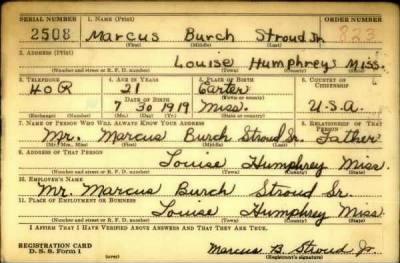 SERIAL NUMBER 1. NAME (Print) ORDER NUMBER
2508 Marcus Burch Stroud Jr. 823
(First) (Middle) (Last)
2. ADDRESS (Print)
Louise Humphrey Miss.
(Number and street or R. F. D. number) (Town) (County) (State)
3. TELEPHONE 4. AGE IN YEARS 5. PLACE OF BIRTH 6. COUNTRY OF CITIZENSHIP
40R 21 Carter
DATE OF BIRTH (Town or county)
7 30 1919 Miss. U.S.A.
(Exchange) (Number) (Mo.) (Day) (Yr.) (State or country)
7. NAME OF PERSON WHO WILL ALWAYS KNOW YOUR ADDRESS 8. RELATIONSHIP OF THAT PERSON
Mr. Marcus Burch Stroud Sr. Father
(Mr., Mrs., Miss) (First) (Middle) (Last)
9. ADDRESS OF THAT PERSON
Louise Humphrey Miss.
(Number and street or R. F. D. number) (Town) (County) (State)
10. EMPLOYER'S NAME
Mr. Marcus Burch Stroud Sr.
11. PLACE OF EMPLOYMENT OR BUSINESS
Louise Humphrey Miss
(Number and street or R. F. D. number) (Town) (County) (State)
I AFFIRM THAT I HAVE VERIFIED ABOVE ANSWERS AND THAT THEY ARE TRUE.
REGISTRATION CARD
D. S. S. Form 1 Marcus B. Stroud Jr.
(over) (Registrant's signature)